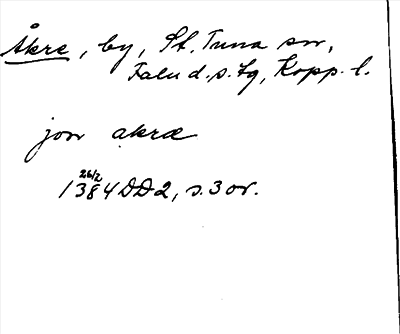 Åkre, by, St. Tuna sn,
Falu d.s. fg, Kopp. l.
jon akræ
26/2
1384 DD2, s. 3 or.